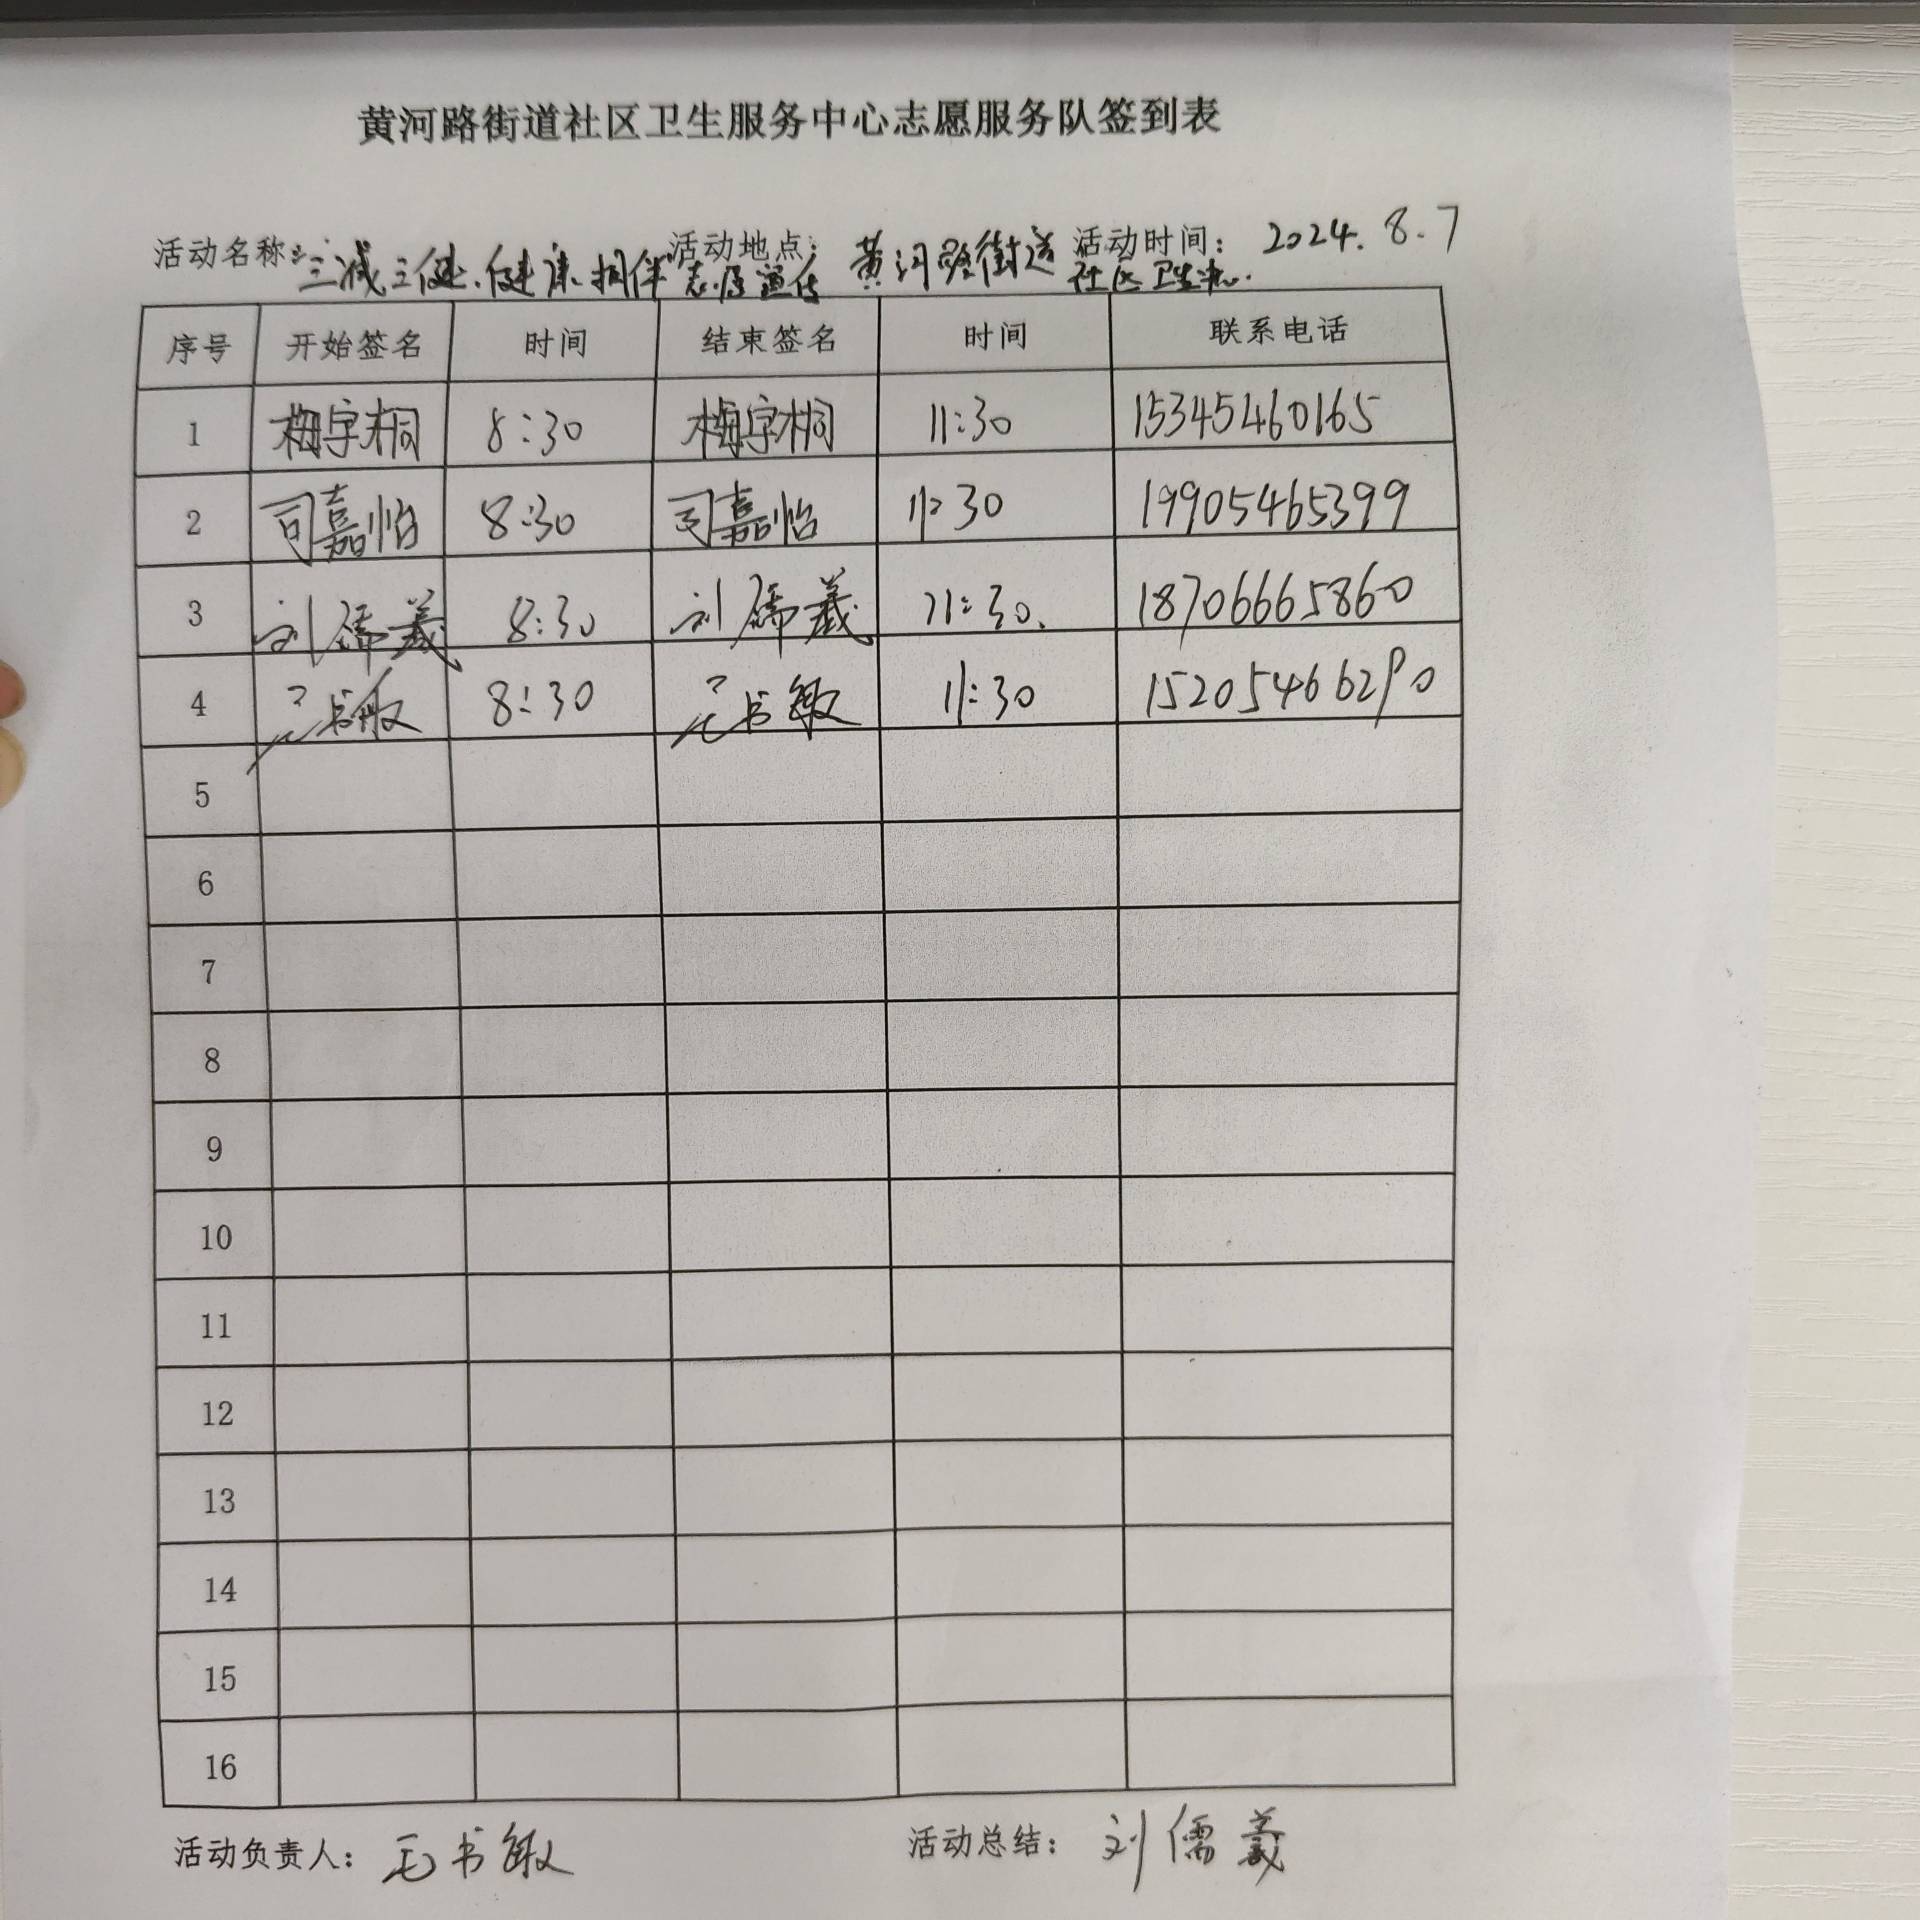 黄河路街道社区卫生服务中心志愿服务队签到表
活动名称: 三减三健、健康相伴志愿宣传 活动地点: 黄河路街道社区卫生中心. 活动时间: 2024.8.7
序号 开始签名 时间 结束签名 时间 联系电话
1 梅宇桐 8:30 梅宇桐 11:30 15345460165
2 司嘉怡 8:30 司嘉怡 11:30 19905465399
3 刘儒義 8:30 刘儒義 11:30. 18706665860
4 毛书敏 8:30 毛书敏 11:30 15205466290
5
6
7
8
9
10
11
12
13
14
15
16
活动负责人: 毛书敏 活动总结: 刘儒義